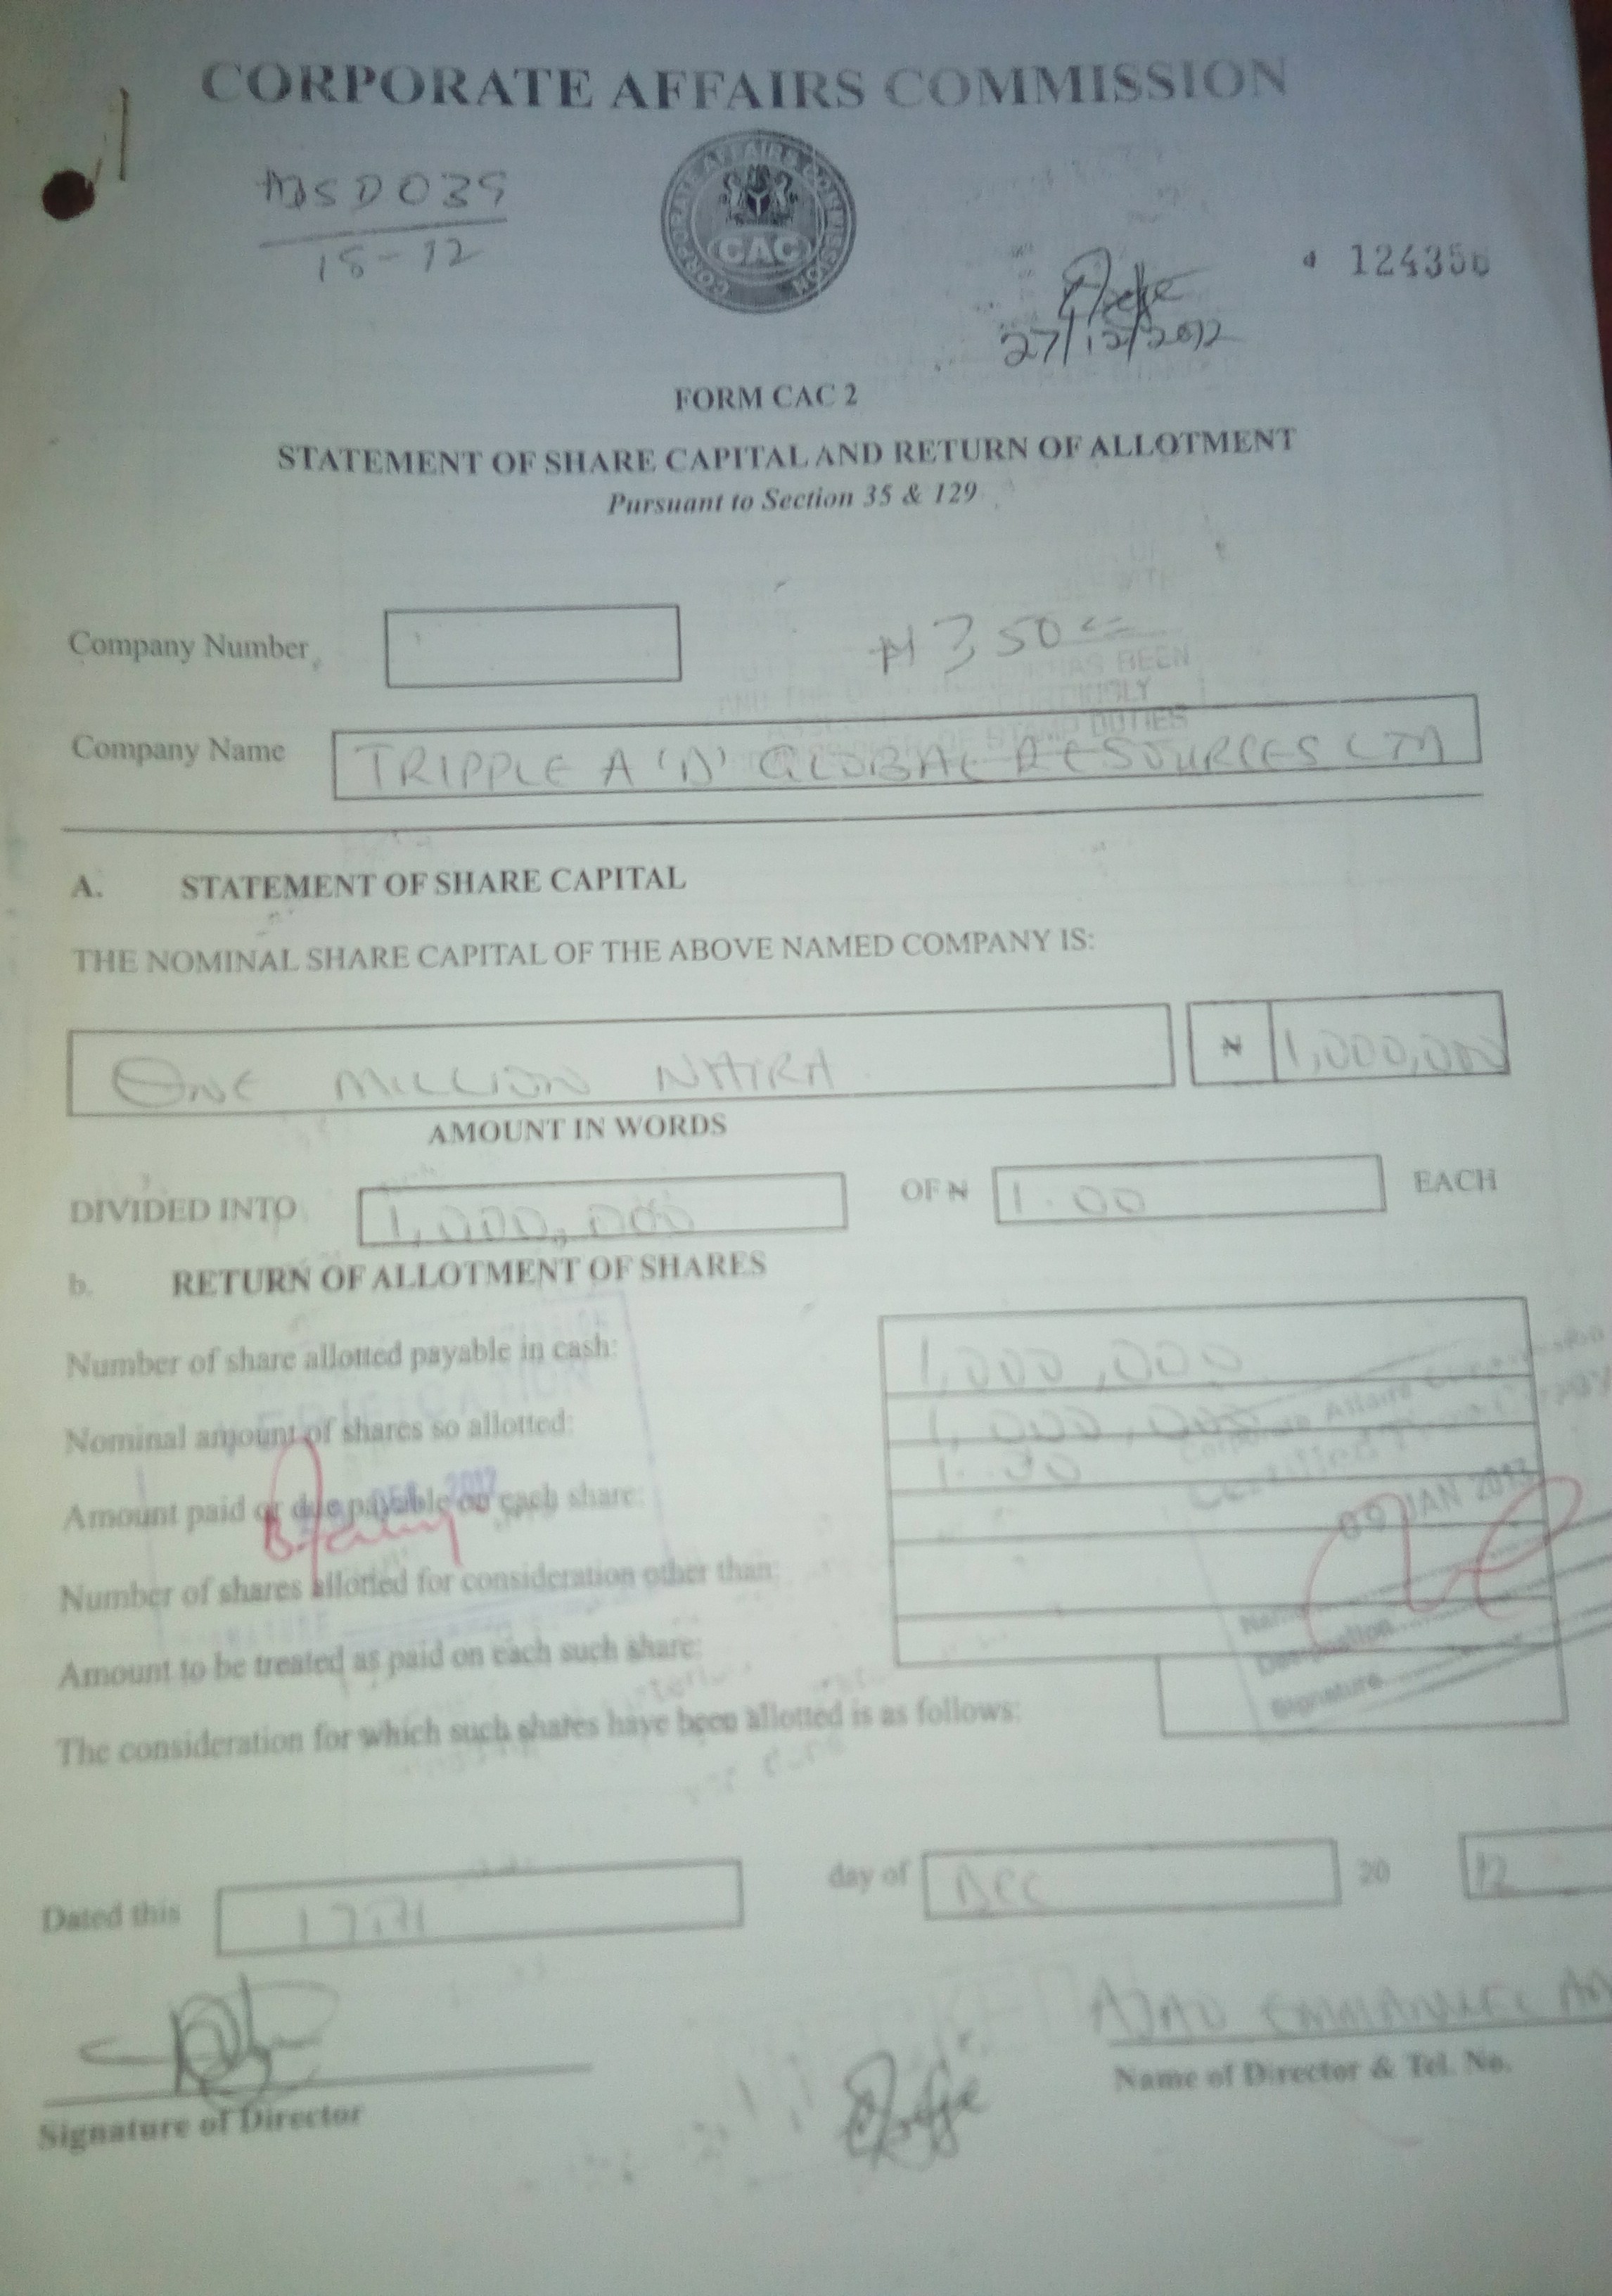 CORPORATE AFFAIRS COMMISSION
15-12
CORPORATE AFFAIRS COMMISSION
CAC
27/12/2012
FORM CAC 2
STATEMENT OF SHARE CAPITAL AND RETURN OF ALLOTMENT
Pursuant to Section 35 & 129
Company Number
AS BEEN
STAMP DUTIES
Company Name TRIPPLE A 'D' GLOBAL RESOURCES LTD
A. STATEMENT OF SHARE CAPITAL
THE NOMINAL SHARE CAPITAL OF THE ABOVE NAMED COMPANY IS:
ONE MILLION NAIRA ₦ 1,000,000
AMOUNT IN WORDS
DIVIDED INTO 1,000,000 OF ₦ 1.00 EACH
b. RETURN OF ALLOTMENT OF SHARES
Number of share allotted payable in cash: 1,000,000
Nominal amount of shares so allotted: 1,000,000
Amount paid or due payable on each share: 1.00
09 JAN 2013
Number of shares allotted for consideration other than:
Amount to be treated as paid on each such share:
Name
Designation
Signature
The consideration for which such shares have been allotted is as follows:
Dated this 17TH day of DEC 20 12
AJAO EMMANUEL
Signature of Director Name of Director & Tel. No.